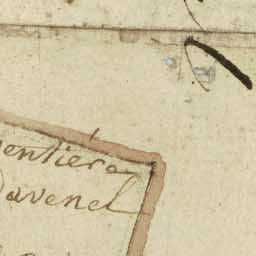 entiéra
Davenel